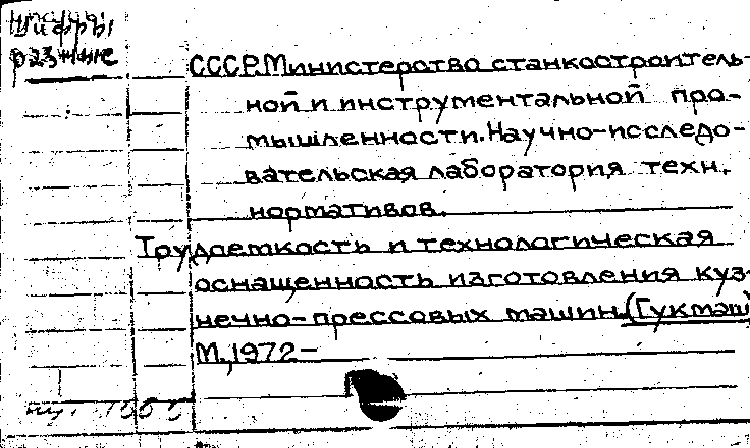 Шифры
разные
СССР. Министерство станкостроитель-
ной и инструментальной про-
мышленности. Научно-исследо-
вательская лаборатория техн.
нормативов.
Трудоемкость и технологическая
оснащенность изготовления куз-
нечно-прессовых машин. (Гукмаш)
М., 1972 –